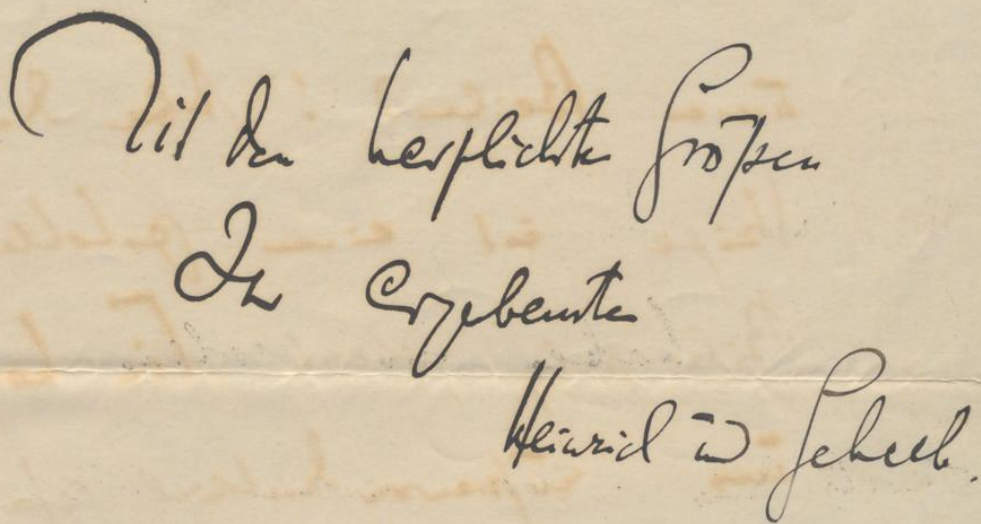 Mit den herzlichsten Grüßen
Ihr ergebenster
Heinrich